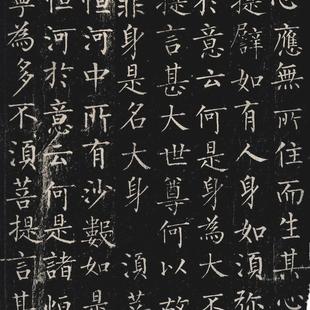 心應無所住而生其心
提譬如有人身如須彌
於意云何是身為大不
提言甚大世尊何以故
非身是名大身 須菩
恒河中所有沙數如是
恒河於意云何是諸恒
寧為多不須菩提言甚